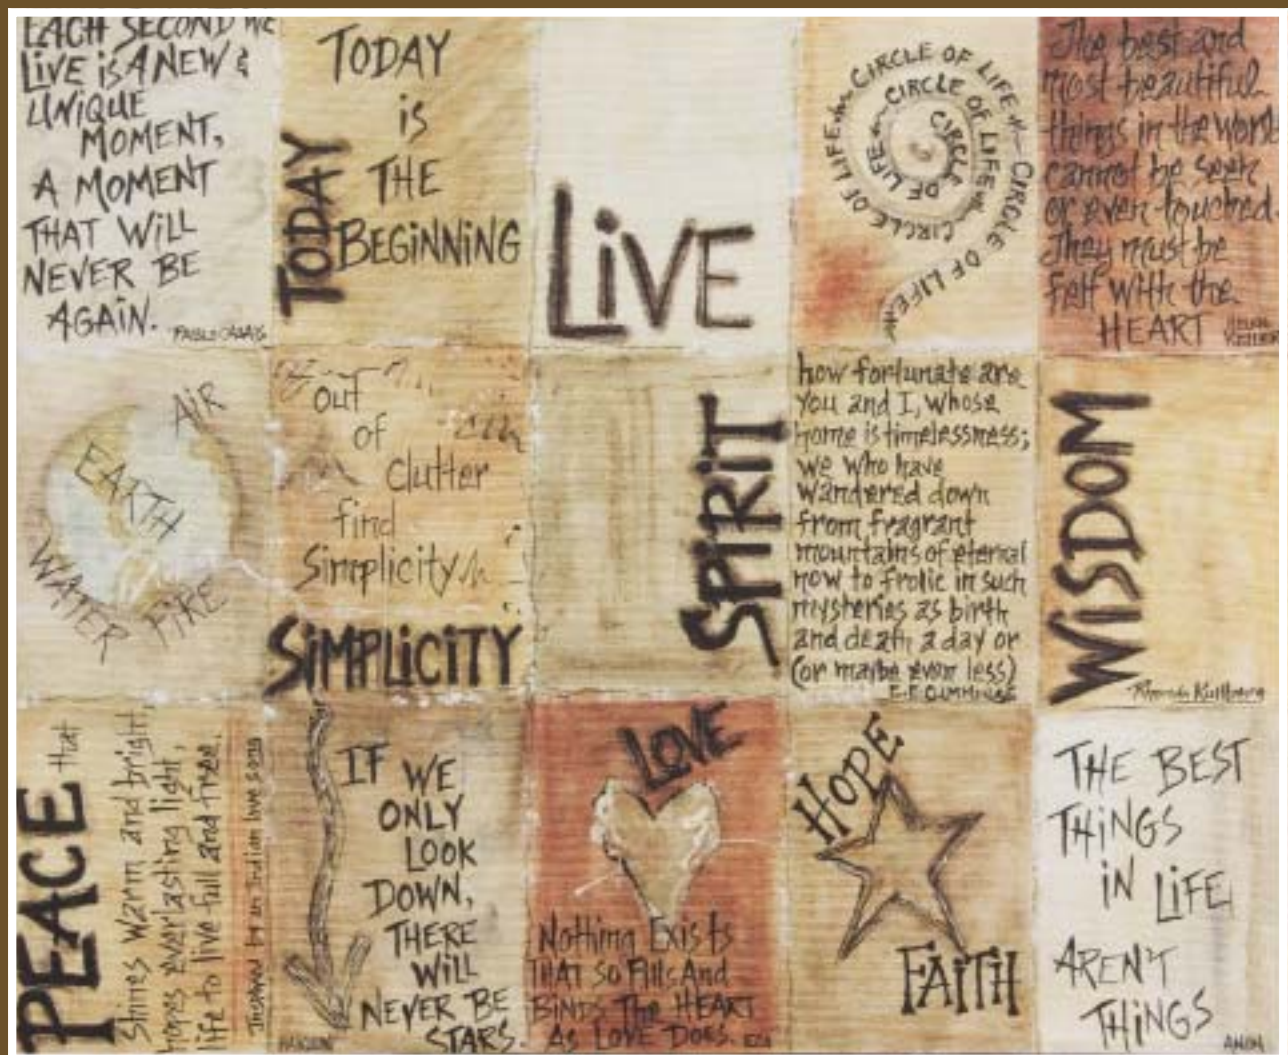 EACH SECOND WE
LIVE IS A NEW &
UNIQUE
MOMENT,
A MOMENT
THAT WILL
NEVER BE
AGAIN.
PABLO CASALS
TODAY
TODAY
is
THE
BEGINNING
LIVE
CIRCLE OF LIFE CIRCLE OF LIFE CIRCLE OF LIFE CIRCLE OF LIFE CIRCLE OF LIFE CIRCLE OF LIFE
The best and
most beautiful
things in the world
cannot be seen
or even touched.
They must be
felt with the
HEART
HELEN
KELLER
AIR
EARTH
WATER
FIRE
out
of
clutter
find
Simplicity
SIMPLICITY
SPIRIT
how fortunate are
you and I, whose
home is timelessness;
we who have
wandered down
from fragrant
mountains of eternal
now to frolic in such
mysteries as birth
and death a day or
(or maybe even less)
E.E. CUMMINGS
WISDOM
PEACE that
shines warm and bright,
hopes everlasting light,
life to live full and free.
Inspired by an Indian love song
IF WE
ONLY
LOOK
DOWN,
THERE
WILL
NEVER BE
STARS.
LOVE
Nothing Exists
THAT so Fills And
BINDS The HEART
AS LOVE DOES.
HOPE
FAITH
THE BEST
THINGS
IN LIFE
AREN'T
THINGS
ANON